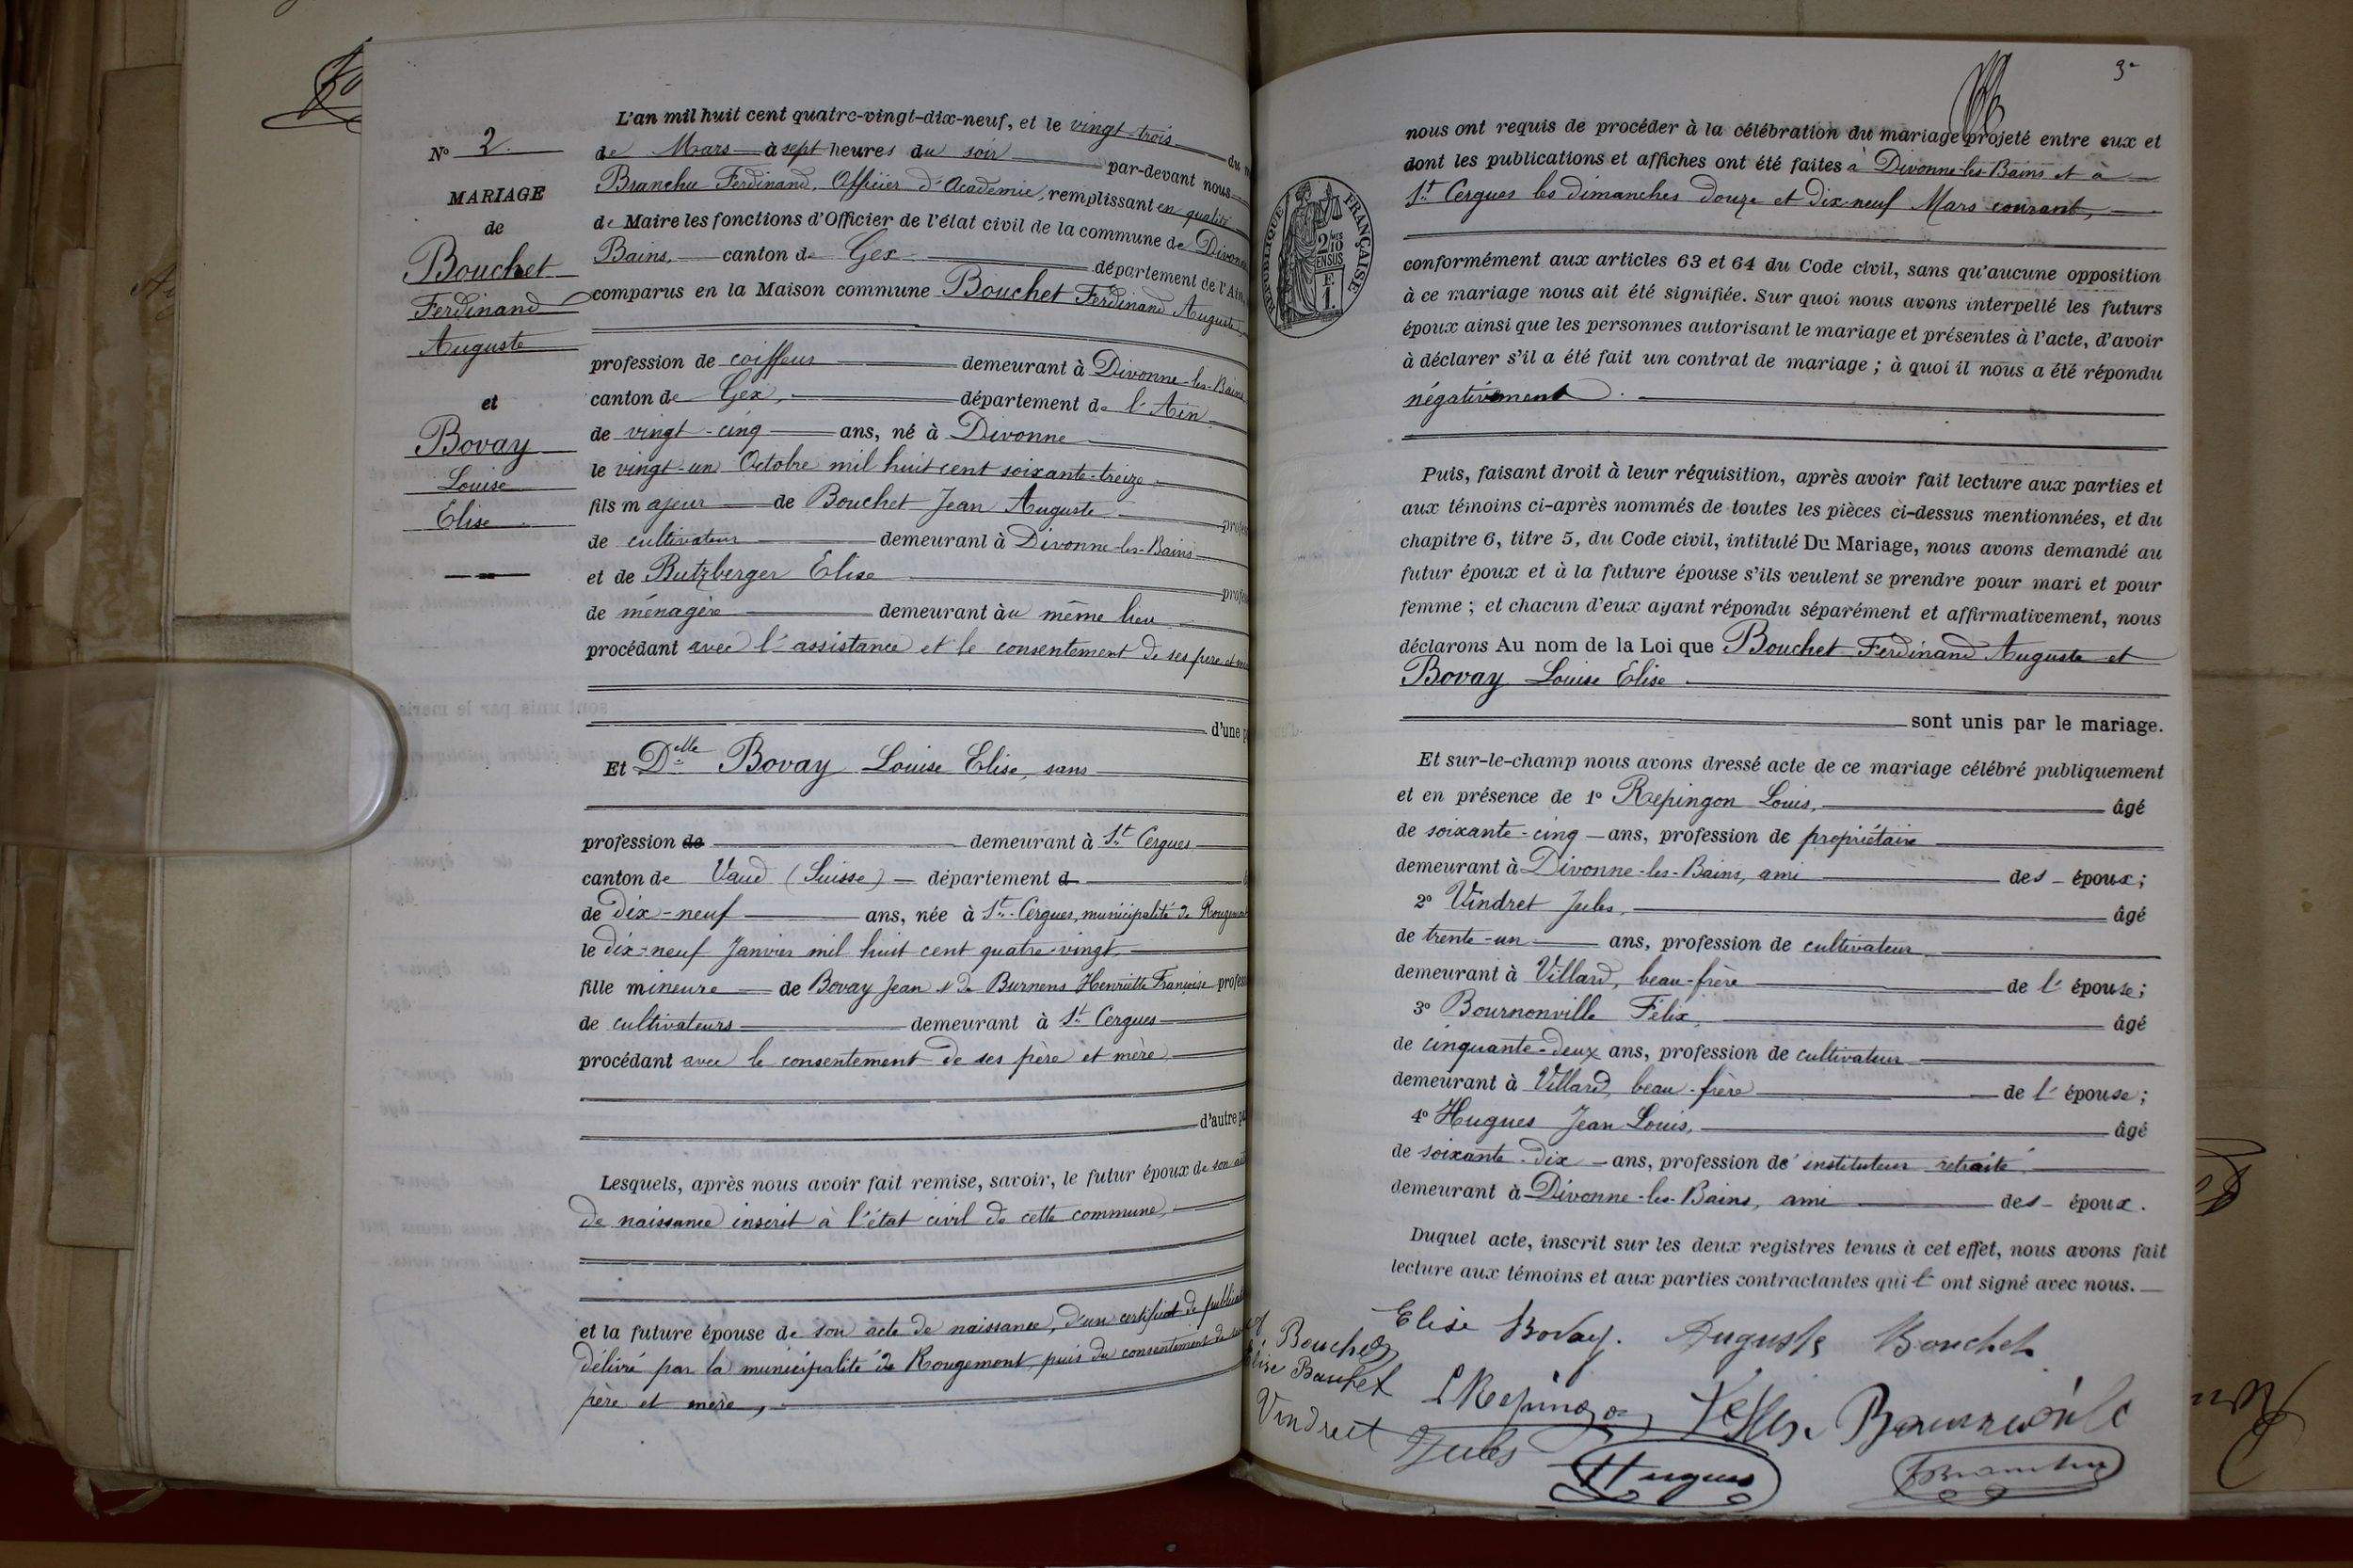 N° 2.
MARIAGE
de
Bouchet
Ferdinand
Auguste
et
Bovay
Louise
Elise
L'an mil huit cent quatre-vingt-dix-neuf, et le vingt-trois du
de Mars à sept heures du soir par-devant nous
Branchu Ferdinand, Officier d'Academie, remplissant en qualité
de Maire les fonctions d'Officier de l'état civil de la commune de Divonne
Bains, canton de Gex département de l'Ain
comparus en la Maison commune Bouchet Ferdinand Auguste
profession de coiffeur demeurant à Divonne-les-Bains
canton de Gex, département de l'Ain
de vingt-cinq ans, né à Divonne
le vingt-un Octobre mil huit cent soixante-treize
fils majeur de Bouchet Jean Auguste
de cultivateur demeurant à Divonne-les-Bains
et de Butzberger Elise
de ménagère demeurant àu même lieu
procédant avec l'assistance et le consentement de ses père et
d'une
Et Delle Bovay Louise Elise, sans
profession de demeurant à St Cergues
canton de Vaud (Suisse) département d
de dix-neuf ans, née à St-Cergues, municipalité de Rougemont
le dix-neuf Janvier mil huit cent quatre-vingt,
fille mineure de Bovay Jean & de Burnens Henriette Françoise
de cultivateurs demeurant à St Cergues
procédant avec le consentement de ses père et mère
d'autre
Lesquels, après nous avoir fait remise, savoir, le futur époux de son
de naissance inscrit à l'état civil de cette commune,
et la future épouse de son acte de naissance, d'un certificat de
délivré par la municipalité de Rougemont, puis du consentement de
père et mère,
3
nous ont requis de procéder à la célébration du mariage projeté entre eux et
dont les publications et affiches ont été faites à Divonne-les-Bains et à
St Cergues les dimanches douze et dix-neuf Mars courant,
RÉPUBLIQUE FRANÇAISE
2/10
EN SUS
E
1.
conformément aux articles 63 et 64 du Code civil, sans qu'aucune opposition
à ce mariage nous ait été signifiée. Sur quoi nous avons interpellé les futurs
époux ainsi que les personnes autorisant le mariage et présentes à l'acte, d'avoir
à déclarer s'il a été fait un contrat de mariage ; à quoi il nous a été répondu
négativement.
Puis, faisant droit à leur réquisition, après avoir fait lecture aux parties et
aux témoins ci-après nommés de toutes les pièces ci-dessus mentionnées, et du
chapitre 6, titre 5, du Code civil, intitulé Du Mariage, nous avons demandé au
futur époux et à la future épouse s'ils veulent se prendre pour mari et pour
femme ; et chacun d'eux ayant répondu séparément et affirmativement, nous
déclarons Au nom de la Loi que Bouchet Ferdinand Auguste et
Bovay Louise Elise.
sont unis par le mariage.
Et sur-le-champ nous avons dressé acte de ce mariage célébré publiquement
et en présence de 1° Repingon Louis, âgé
de soixante-cinq ans, profession de propriétaire
demeurant à Divonne-les-Bains, ami des époux ;
2° Vindret Jules, âgé
de trente-un ans, profession de cultivateur
demeurant à Villard, beau-frère de l'épouse ;
3° Bournonville Félix, âgé
de cinquante-deux ans, profession de cultivateur
demeurant à Villard, beau-frère de l'épouse ;
4° Hugues Jean Louis, âgé
de soixante-dix ans, profession de instituteur retraité
demeurant à Divonne-les-Bains, ami des époux.
Duquel acte, inscrit sur les deux registres tenus à cet effet, nous avons fait
lecture aux témoins et aux parties contractantes qui l'ont signé avec nous.
Elise Bovay. Auguste Bouchet
Bouchet
Elise Bouchet
L Repingon
Vindret Jules
Hugues
Branchu